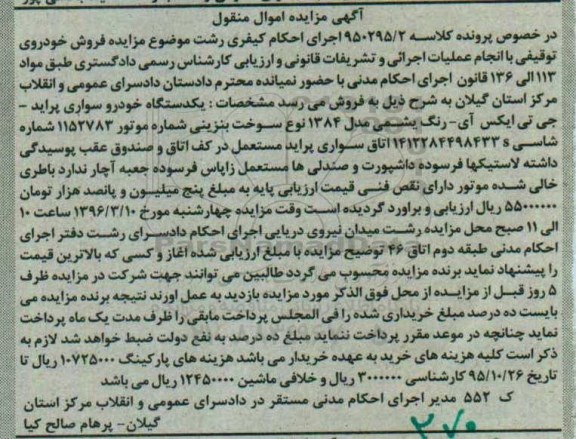 آگهی مزایده اموال منقول
در خصوص پرونده کلاسه ۹۵۰۲۹۵/۲ اجرای احکام کیفری رشت موضوع مزایده فروش خودروی
توقیفی با انجام عملیات اجرائی و تشریفات قانونی و ارزیابی کارشناس رسمی دادگستری طبق مواد
۱۱۳ الی ۱۳۶ قانون اجرای احکام مدنی با حضور نمیانده محترم دادستان دادسرای عمومی و انقلاب
مرکز استان گیلان به شرح ذیل به فروش می رسد مشخصات : یکدستگاه خودرو سواری پراید –
جی تی ایکس آی- رنگ یشمی مدل ۱۳۸۴ نوع سوخت بنزینی شماره موتور ۱۱۵۲۷۸۳ شماره
شاسی s ۱۴۱۲۲۸۴۴۹۸۴۳۳ اتاق سواری پراید مستعمل در کف اتاق و صندوق عقب پوسیدگی
داشته لاستیکها فرسوده داشپورت و صندلی ها مستعمل زاپاس فرسوده جعبه آچار ندارد باطری
خالی شده موتور دارای نقص فنی قیمت ارزیابی پایه به مبلغ پنج میلیون و پانصد هزار تومان
۵۵۰۰۰۰۰۰ ریال ارزیابی و براورد گردیده است وقت مزایده چهارشنبه مورخ ۱۳۹۶/۳/۱۰ ساعت ۱۰
الی ۱۱ صبح محل مزایده رشت میدان نیروی دریایی اجرای احکام دادسرای رشت دفتر اجرای
احکام مدنی طبقه دوم اتاق ۴۶ توضیح مزایده با مبلغ ارزیابی شده اغاز و کسی که بالاترین قیمت
را پیشنهاد نماید برنده مزایده محسوب می گردد طالبین می توانند جهت شرکت در مزایده ظرف
۵ روز قبل از مزایده از محل فوق الذکر مورد مزایده بازدید به عمل اورند نتیجه برنده مزایده می
بایست ده درصد مبلغ خریداری شده را فی المجلس پرداخت مابقی را ظرف مدت یک ماه پرداخت
نماید چنانچه در موعد مقرر پرداخت ننماید مبلغ ده درصد به نفع دولت ضبط خواهد شد لازم به
ذکر است کلیه هزینه های خرید به عهده خریدار می باشد هزینه های پارکینگ ۱۰۷۲۵۰۰۰ ریال تا
تاریخ ۹۵/۱۰/۲۶ کارشناسی ۳۰۰۰۰۰۰ ریال و خلافی ماشین ۱۲۴۵۰۰۰۰ ریال می باشد
ک ۵۵۲ مدیر اجرای احکام مدنی مستقر در دادسرای عمومی و انقلاب مرکز استان
گیلان- پرهام صالح کیا
۳۷۰